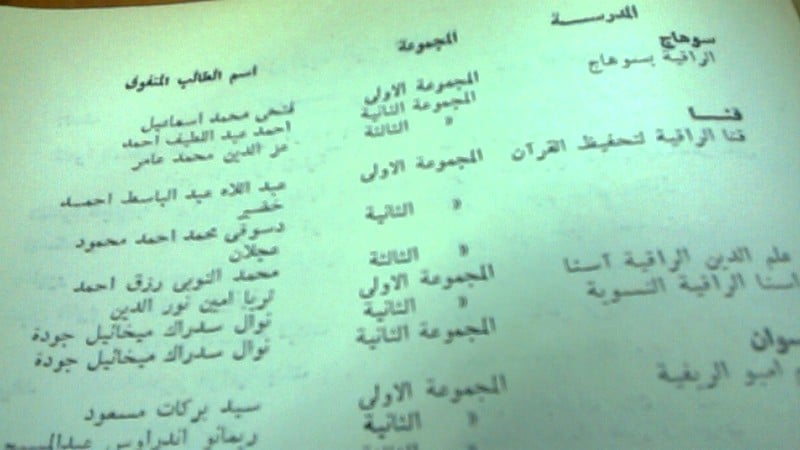 المدرســـة المجموعة اسم الطالب المتفوق
سوهاج
الراقية بسوهاج المجموعة الاولى فتحى محمد اسماعيل
المجموعة الثانية احمد عبد اللطيف احمد
« الثالثة عز الدين محمد عامر
قنـــا
قنا الراقية لتحفيظ القرآن المجموعة الاولى عبد اللاه عبد الباسط احمـد
خضير
« الثانية دسوقى محمد احمد محمود
عجلان
« الثالثة محمد النوبى رزق احمد
علم الدين الراقية آسنا المجموعة الاولى ثريا امين نور الدين
اسنا الراقية النسوية « الثانية نوال سدراك ميخائيل جودة
المجموعة الثانية نوال سدراك ميخائيل جودة
سوان
امبو الريفية المجموعة الاولى سيد بركات مسعود
« الثانية ريمانو اندراوس عبدالمسيح